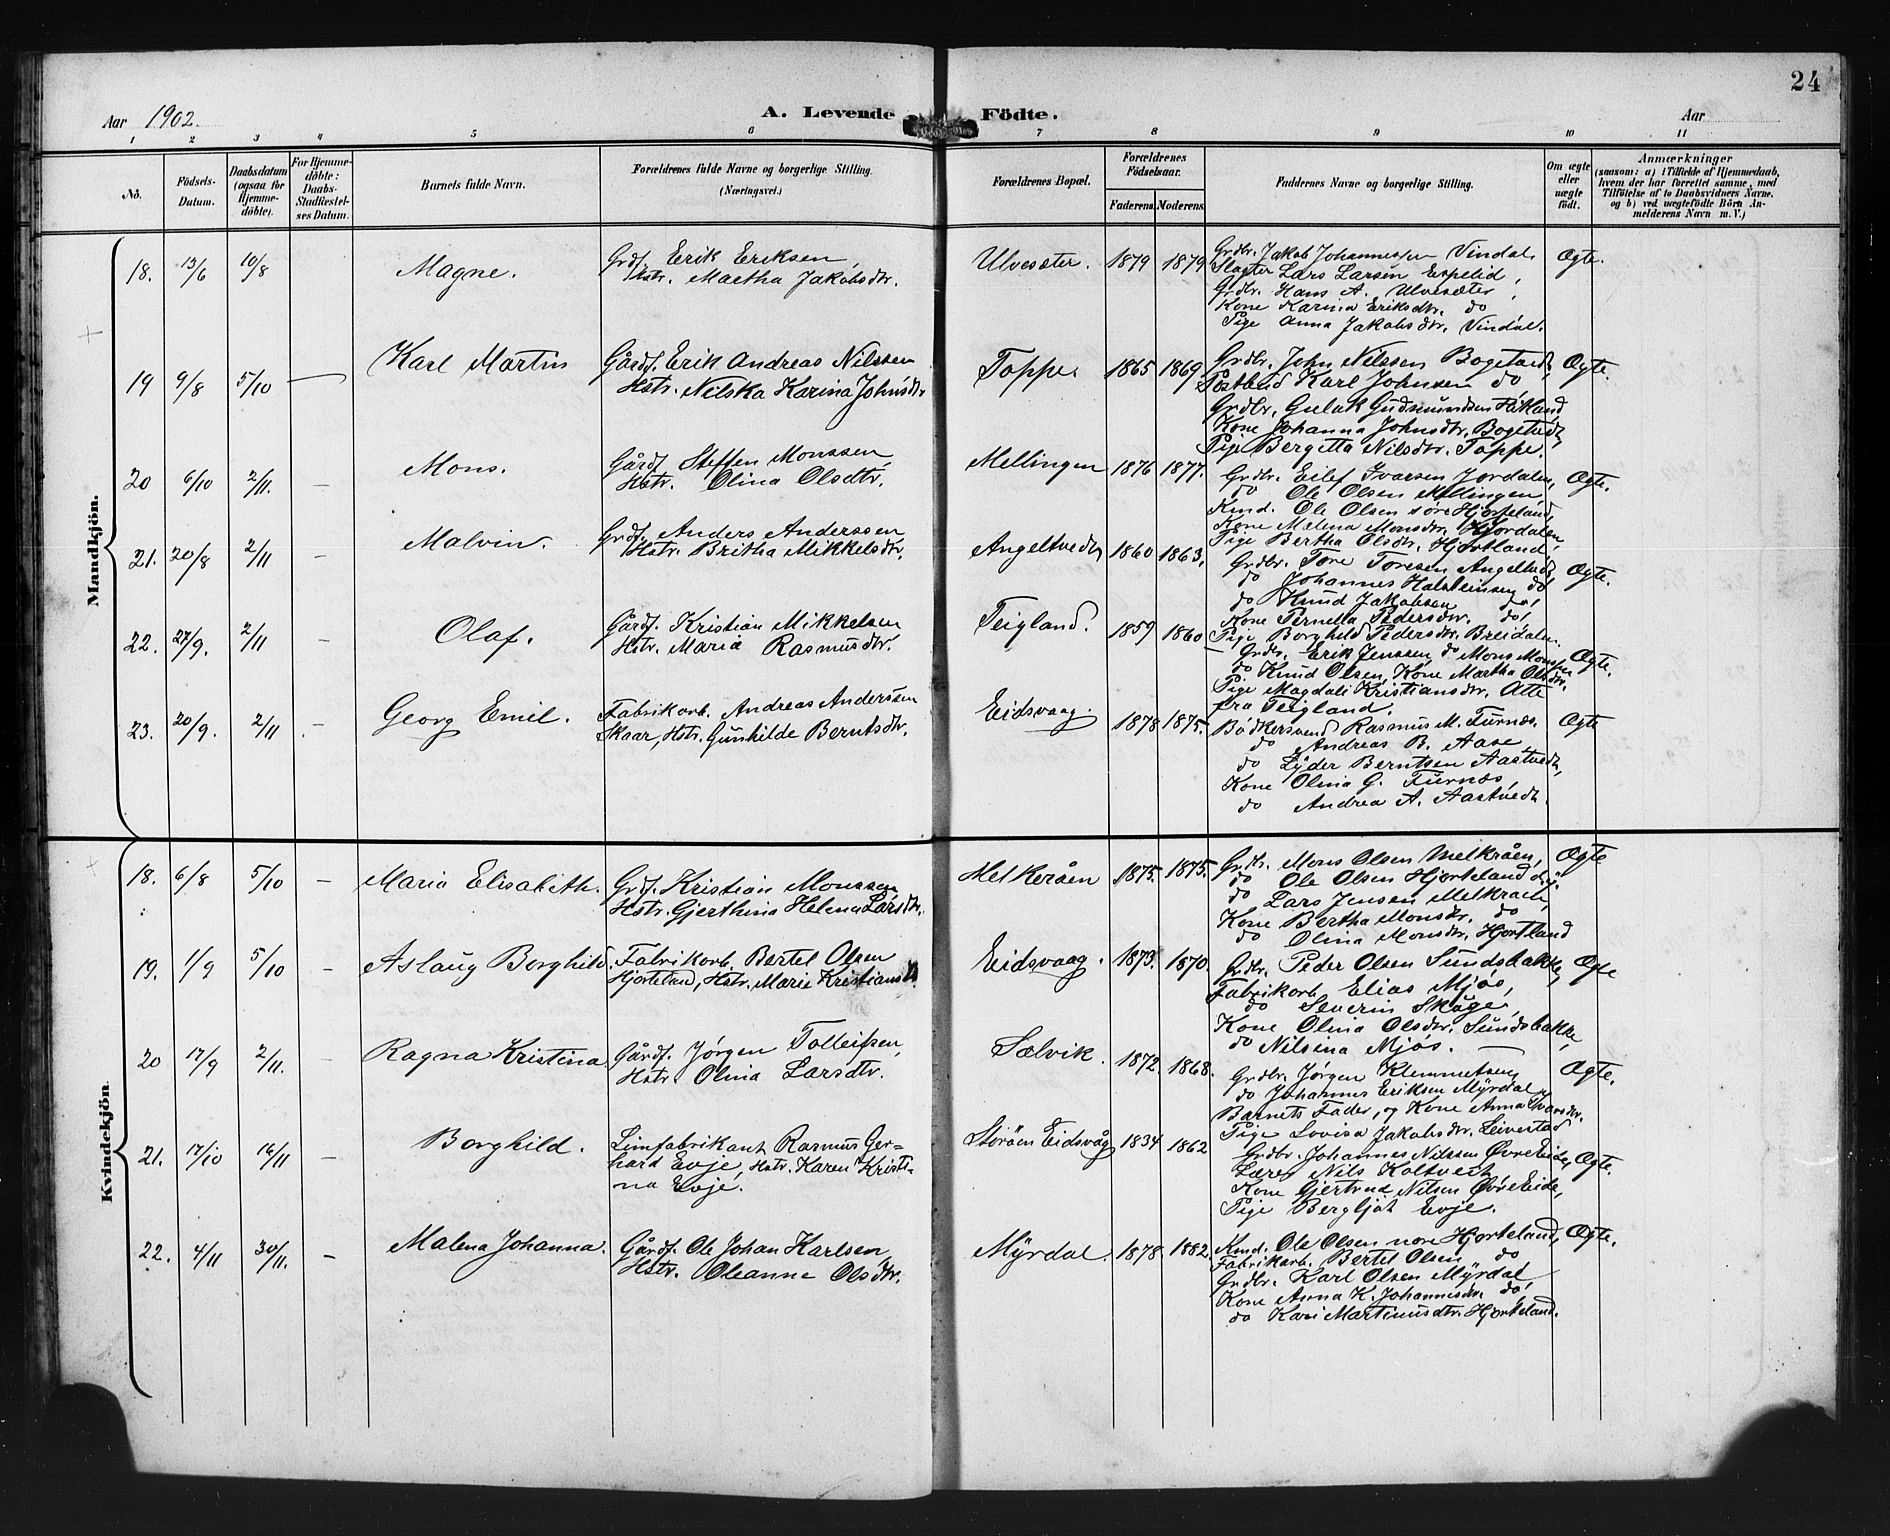 24
Aar 1902. A. Levende Födte. Aar
1 2 3 4 5 6 7 8 9 10 11
No. Födsels-Datum. Daabsdatum (ogsaa for Hjemme-döbte). For Hjemme-döbte: Daabs-Stadfæstel-ses Datum. Barnets fulde Navn. Forældrenes fulde Navne og borgerlige Stilling. (Næringsvei.) Forældrenes Bopæl. Forældrenes Födselsaar. Faderens. Moderens. Faddernes Navne og borgerlige Stilling. Om ægte eller uægte födt. Anmærkninger
(saasom: a) i Tilfælde af Hjemmedaab,
hvem der har forrettet samme, med
Tilföielse af to Daabsvidners Navne,
og b) ved uægtefödte Börn An-
melderens Navn m. V.)
Mandkjön.
18. 13/6 10/8 Magne. Grdf. Erik Eriksen, Ulvesæter. 1879 1879 Grdbr. Jakob Johannessen Vindal, Ægte.
Hstr. Martha Jakobsdtr. Slagter Lars Larsen Espelid,
Grdbr. Hans A. Ulvesæter,
Kone Karina Eriksdtr. do
Pige Anna Jakobsdtr. Vindal.
19 9/8 5/10 — Karl Martin Gårdf. Erik Andreas Nilssen Toppe. 1865 1869 Grdbr. John Nilssen Bogetvedt, Ægte.
Hstr. Nilska Karina Johnsdtr. Postbud Karl Johnsen do
Grdbr. Gulak Gudmundsen Håkland,
Kone Johanna Johnsdtr. Bogetvedt,
Pige Bergitta Nilsdtr. Toppe.
20 6/10 2/11. — Mons. Gårdf. Steffen Monssen, Mellingen 1876 1877. Grdbr. Eilef Ivarsen Jordalen, Ægte.
Hstr. Olina Olsdtr. do Ole Olsen Mellingen,
Kmd. Ole Olsen söre Hjorteland,
Kone Malena Monsdtr. Jordalen,
Pige Bertha Olsdtr. Hjortland.
21. 20/8 2/11 — Malvin. Grdf. Anders Anderssen Angeltvedt 1860 1863. Grdbr. Tore Toresen Angeltvedt, Ægte.
Hstr. Britha Mikkelsdtr. do Johannes Halsteinsen do
do Knud Jakobsen do,
Kone Pernella Pedersdtr. do,
Pige Borghild Pedersdtr. Breidalen.
22. 27/9. 2/11 — Olaf. Gårdf. Kristian Mikkelsen Teigland. 1859 1860 Grdbr. Erik Jenssen, do Mons Monsen Ægte.
Hstr. Maria Rasmusdtr. do Knud Olsen, Kone Martha Olsdtr.
Pige Magdali Kristiansdtr. Alle
fra Teigland.
23. 20/9. 2/11 — Georg Emil. Fabrikarb. Andreas Anderssen Eidsvaag. 1878 1875. Bödkersvend Rasmus M. Furnæs. Ægte
Skaar, Hstr. Gunhilde Berntsdtr. do Andreas B. Aase
do Lyder Berntsen Aastvedt,
Kone Olina G. Furnæs,
do Andrea A. Aastvedt.
Kvindekjön.
18. 6/8 5/10 — Maria Elisabeth. Grdf. Kristian Monssen, Melkeråen 1875. 1875. Grdbr. Mons Olsen Melkråen, Ægte
Hstr. Gjerthina Helena Larsdtr. do Ole Olsen Hjorteland d.y.
do Lars Jensen Melkråen,
Kone Bertha Monsdtr. do
do Olina Monsdtr. Hjortland
19. 1/9 5/10 — Aslaug Borghild. Fabrikarb. Bertel Olsen Eidsvaag. 1873. 1870. Grdbr. Peder Olsen Sundsbakke, Ægte
Hjorteland, Hstr. Marie Kristiansd. Fabrikarb. Elias Mjös,
do Severin Skage,
Kone Olina Olsdtr. Sundsbakke,
do Nilsina Mjös.
20 17/9 2/11. — Ragna Kristina Gårdf. Jørgen Tolleifsen, Sælvik. 1872. 1868. Grdbr. Jørgen Klemmetsen Ægte.
Hstr. Olina Larsdtr. do Johannes Eriksen Myrdal
Barnets Fader, og Kone Anna Ivarsdtr.
Pige Lovisa Jakobsdtr. Leivestad
21. 17/10 16/11 — Borghild. Limfabrikant Rasmus Ger- Storöen Eidsvåg 1834 1862 Grdbr. Johannes Nilssen Øvre Eide, Ægte.
hard Evje, Hstr. Karen Kristi- Lærer Nils Koltveit,
na Evje. Kone Gjertrud Nilsen Øvre Eide,
Pige Bergljot Evje.
22. 4/11 30/11. — Malena Johanna. Gårdf. Ole Johan Karlsen, Myrdal. 1878 1882. Kmd. Ole Olsen nore Hjorteland, Ægte.
Hstr. Oleanne Olsdtr. Fabrikarb. Bertel Olsen do
Grdbr. Karl Olsen Myrdal
Kone Anna K. Johannesdtr. do,
do Kari Martinusdtr. Hjorteland.